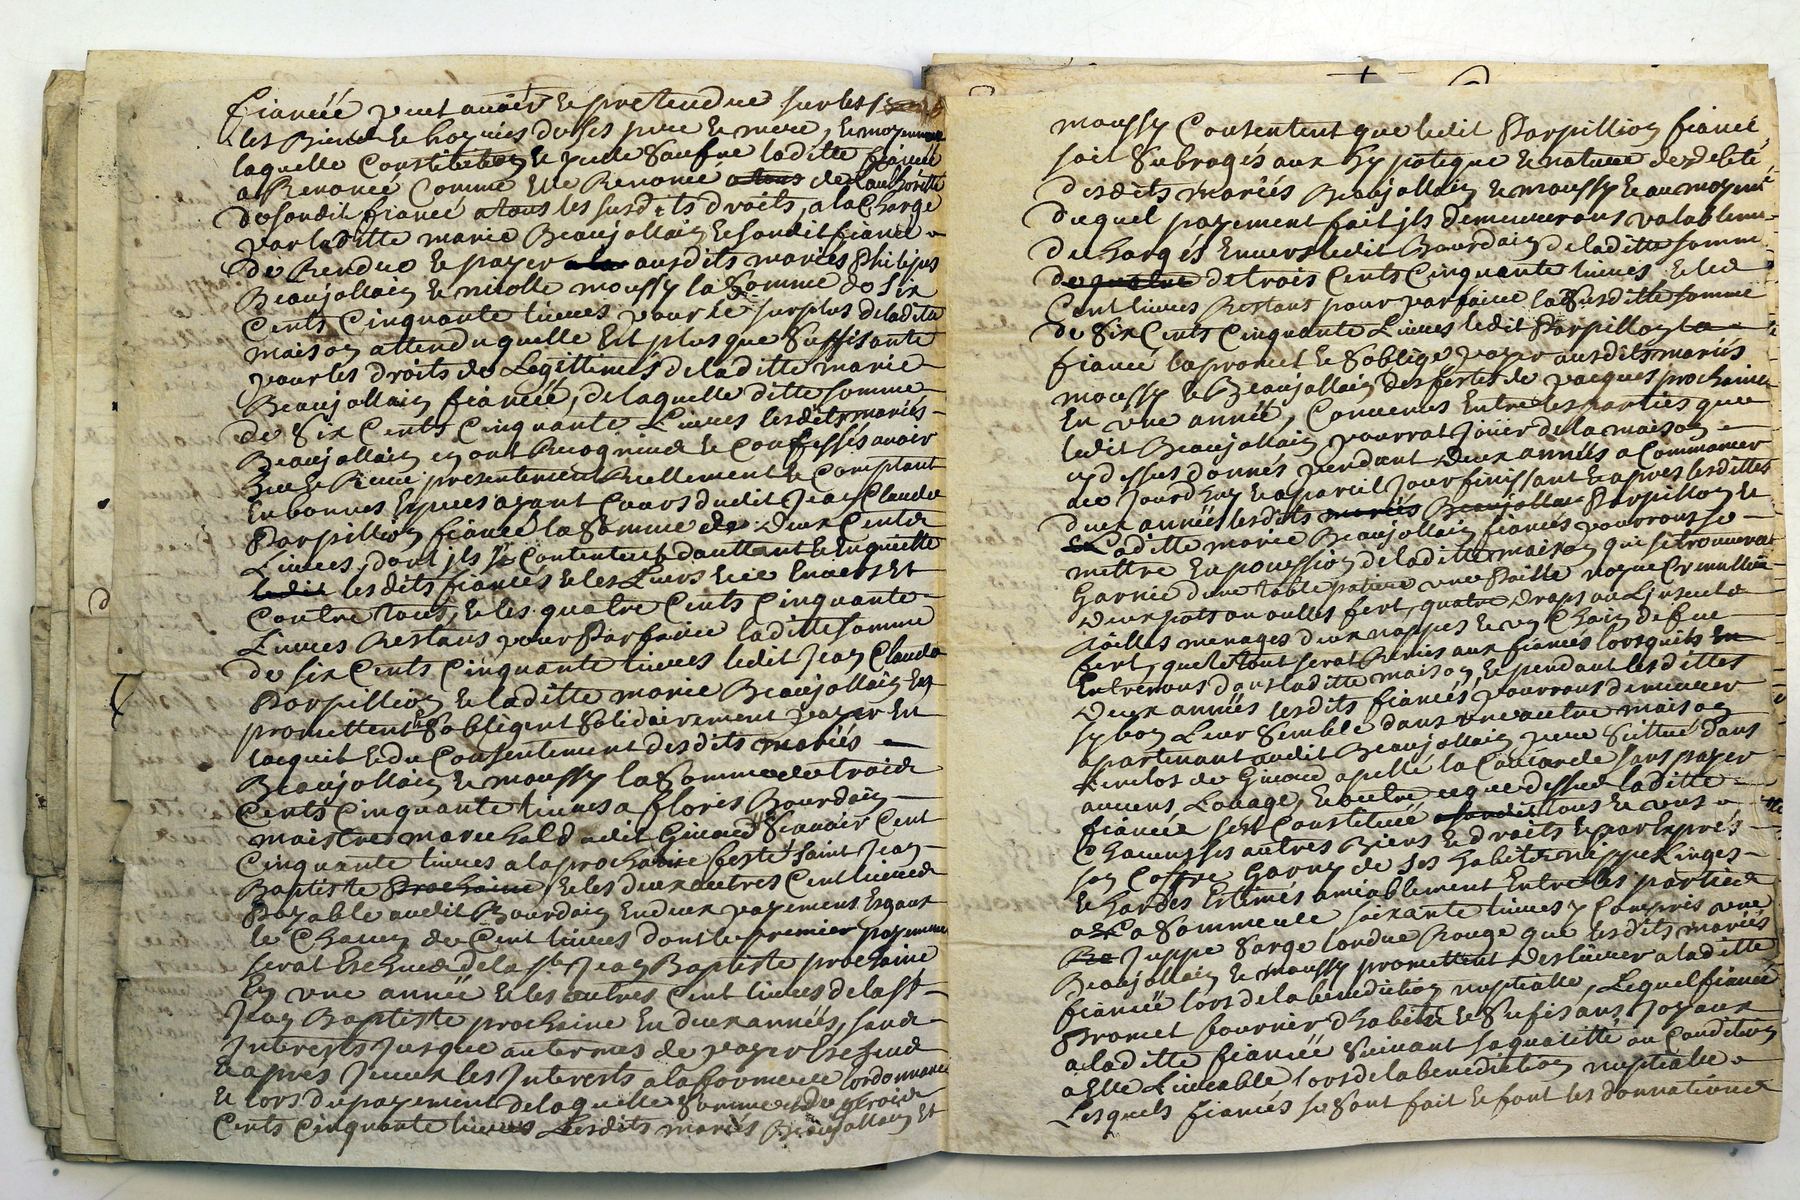 fiancéé peut avoir & pretendre sur les
les Biens & hoyries de ses pere & mere, & moyennant
laquelle Constitution & vente saufue laditte fiancéé
a Renoncé Comme Elle Renonce a tous de Lauthorité
de son dit fiancé a tous les susdits droits, a la charge
par laditte marie Beaujollain & sondit fiancé
de Rendre & payer a la ausdits mariés Philipes
Beaujollain & nicolle moussy la Somme de six
Cents Cinquante livres pour le surplus de laditte
maison attendu quelle Est plus que suffisante
pour les droits de Legittimés de laditte marie
Beaujollain fiancéé, de laquelle ditte somme
de Six Cents Cinquante Livres lesdits mariés
Beaujollain en ont Recogneu & Confessés avoir
Heu & Receu presentement Reellement & Comptant
En bonnes Especes ayant Cours dudit Jean Claude
Parpillion fiancé la Somme de deux Cents
Livres, dont ils se Contentent dauttant & En quitte
ledit lesdits fiancés & les Leurs Envers Et
Contre tous, & les quatre Cents Cinquante
Livres Restans pour Parfaire laditte somme
de six Cents Cinquante livres ledit Jean Claude
Parpillion & laditte marie Beaujollain
promettent & Sobligent Solidairement payer En
lacquit & du Consentement desdits mariés
Beaujollain & moussy la Somme de trois
Cents Cinquante livres a floris Bourdain
maistre marechald audit Giraud Scavoir Cent
Cinquante livres a la prochaine feste Saint Jean
Baptiste Prochaine, & les deux autres Cent livres
Payable audit Bourdain En deux payemens Egaux
le Chacun de Cent livres dont le premier payement
serat Escheu de la St Jean Baptiste prochaine
En une année & les autres cent livres de la St
Jean Baptiste prochaine En deux années, sans
Interests Jusque au termes de payer
& aprés Iceux les Interests a la forme de lordonnance
& lors du payement de laquelle Somme de trois
Cents Cinquante livres Lesdits mariés Beaujollain Et
moussy Consentent que ledit Parpillion fiancé
soit Subrogés aux hypoteque & nature de debte
desdits mariés Beaujollain & moussy & au moyens
duquel payement fait ils demeurerons valablement
dechargés Envers ledit Bourdain de laditte somme
de quatre de trois Cents Cinquante livres & les
Cent livres Restans pour parfaire la Susditte somme
de Six Cents Cinquante Livres ledit Parpillon la
fiancé la promet & Soblige payer ausdits mariés
moussy & Beaujollain des festes de pacques prochaine
En une année, Convenus Entre les parties que
ledit Beaujollain pourrat Jouir de la maison
cy dessus donnés pendant deux années a Commancer
de Jourdhuy & a pareil Jour finissant & apres lesdittes
deux années lesdits mariés Beaujollain Parpillion &
Laditte marie Beaujollain fiancés pourrons se
mettre En possession de laditte maison qui se trouverat
Garnie dune table une Paille
deux pots ou oulles fert, quatre draps ou Linseuls
toilles menages deux nappes & un Chain de feu
fert, que le tout serat Remis aux fiancés lorsquils En
Entrerons dans laditte maison, & pendant lesdittes
deux années lesdits fiancés pourrons demeurer
sy bon Leur Semble dans une autre maison
apartenant audit Beaujollain pere Scittué dans
Lenclos de Giraud apellé la Couarde sans payer
aucuns Louage, & outre ce que dessus laditte
fiancéé sest Constitué tous & uns
Chacuns ses autres Biens & droits & par Exprés
son Coffre Garny de Ses habits nippe Linges
& hardes Estimés amiablement Entre les parties
a La Somme de soixante livres y Compris une
Juppe Sarge londre Rouge que lesdits mariés
Beaujollain & moussy promettent deslivrer a laditte
fiancéé lors de la benediction nuptialle, Lequel fiancé
Promet fournir dhabits & Sufisans Joyaux
a laditte fiancéé Suivant sa qualitté ou Condition
a Elle Livrable lors de la benediction nuptialle
Lesquels fiancés se sont fait & font les donnations